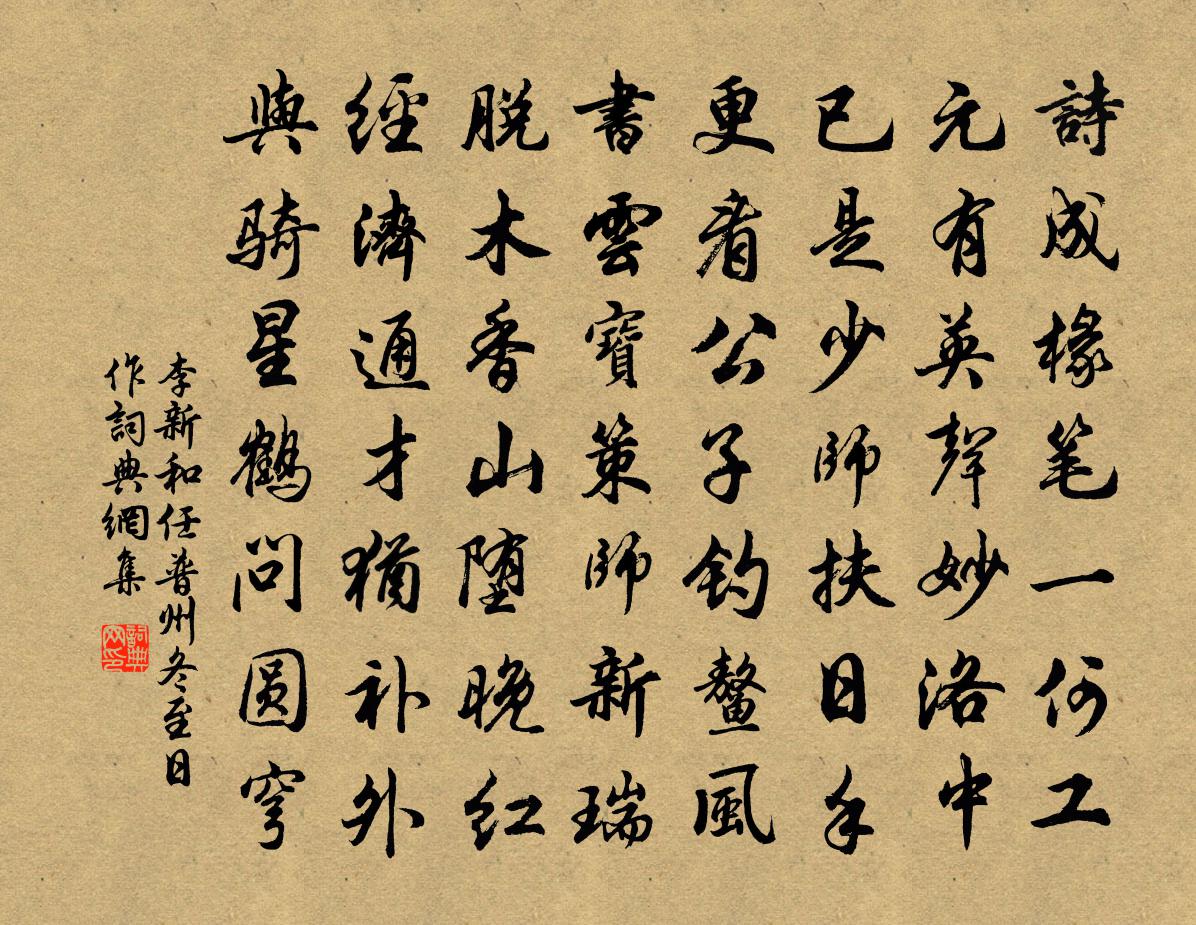 詩成椽笔一何工
元有英聲妙洛中
已是少師扶日手
更看公子釣鰲風
書雲寶策師新瑞
脱木香山堕晚红
經濟通才猶补外
與骑星鶴問圆穹
李新和任普州冬至日
作詞典網集
詞典网印